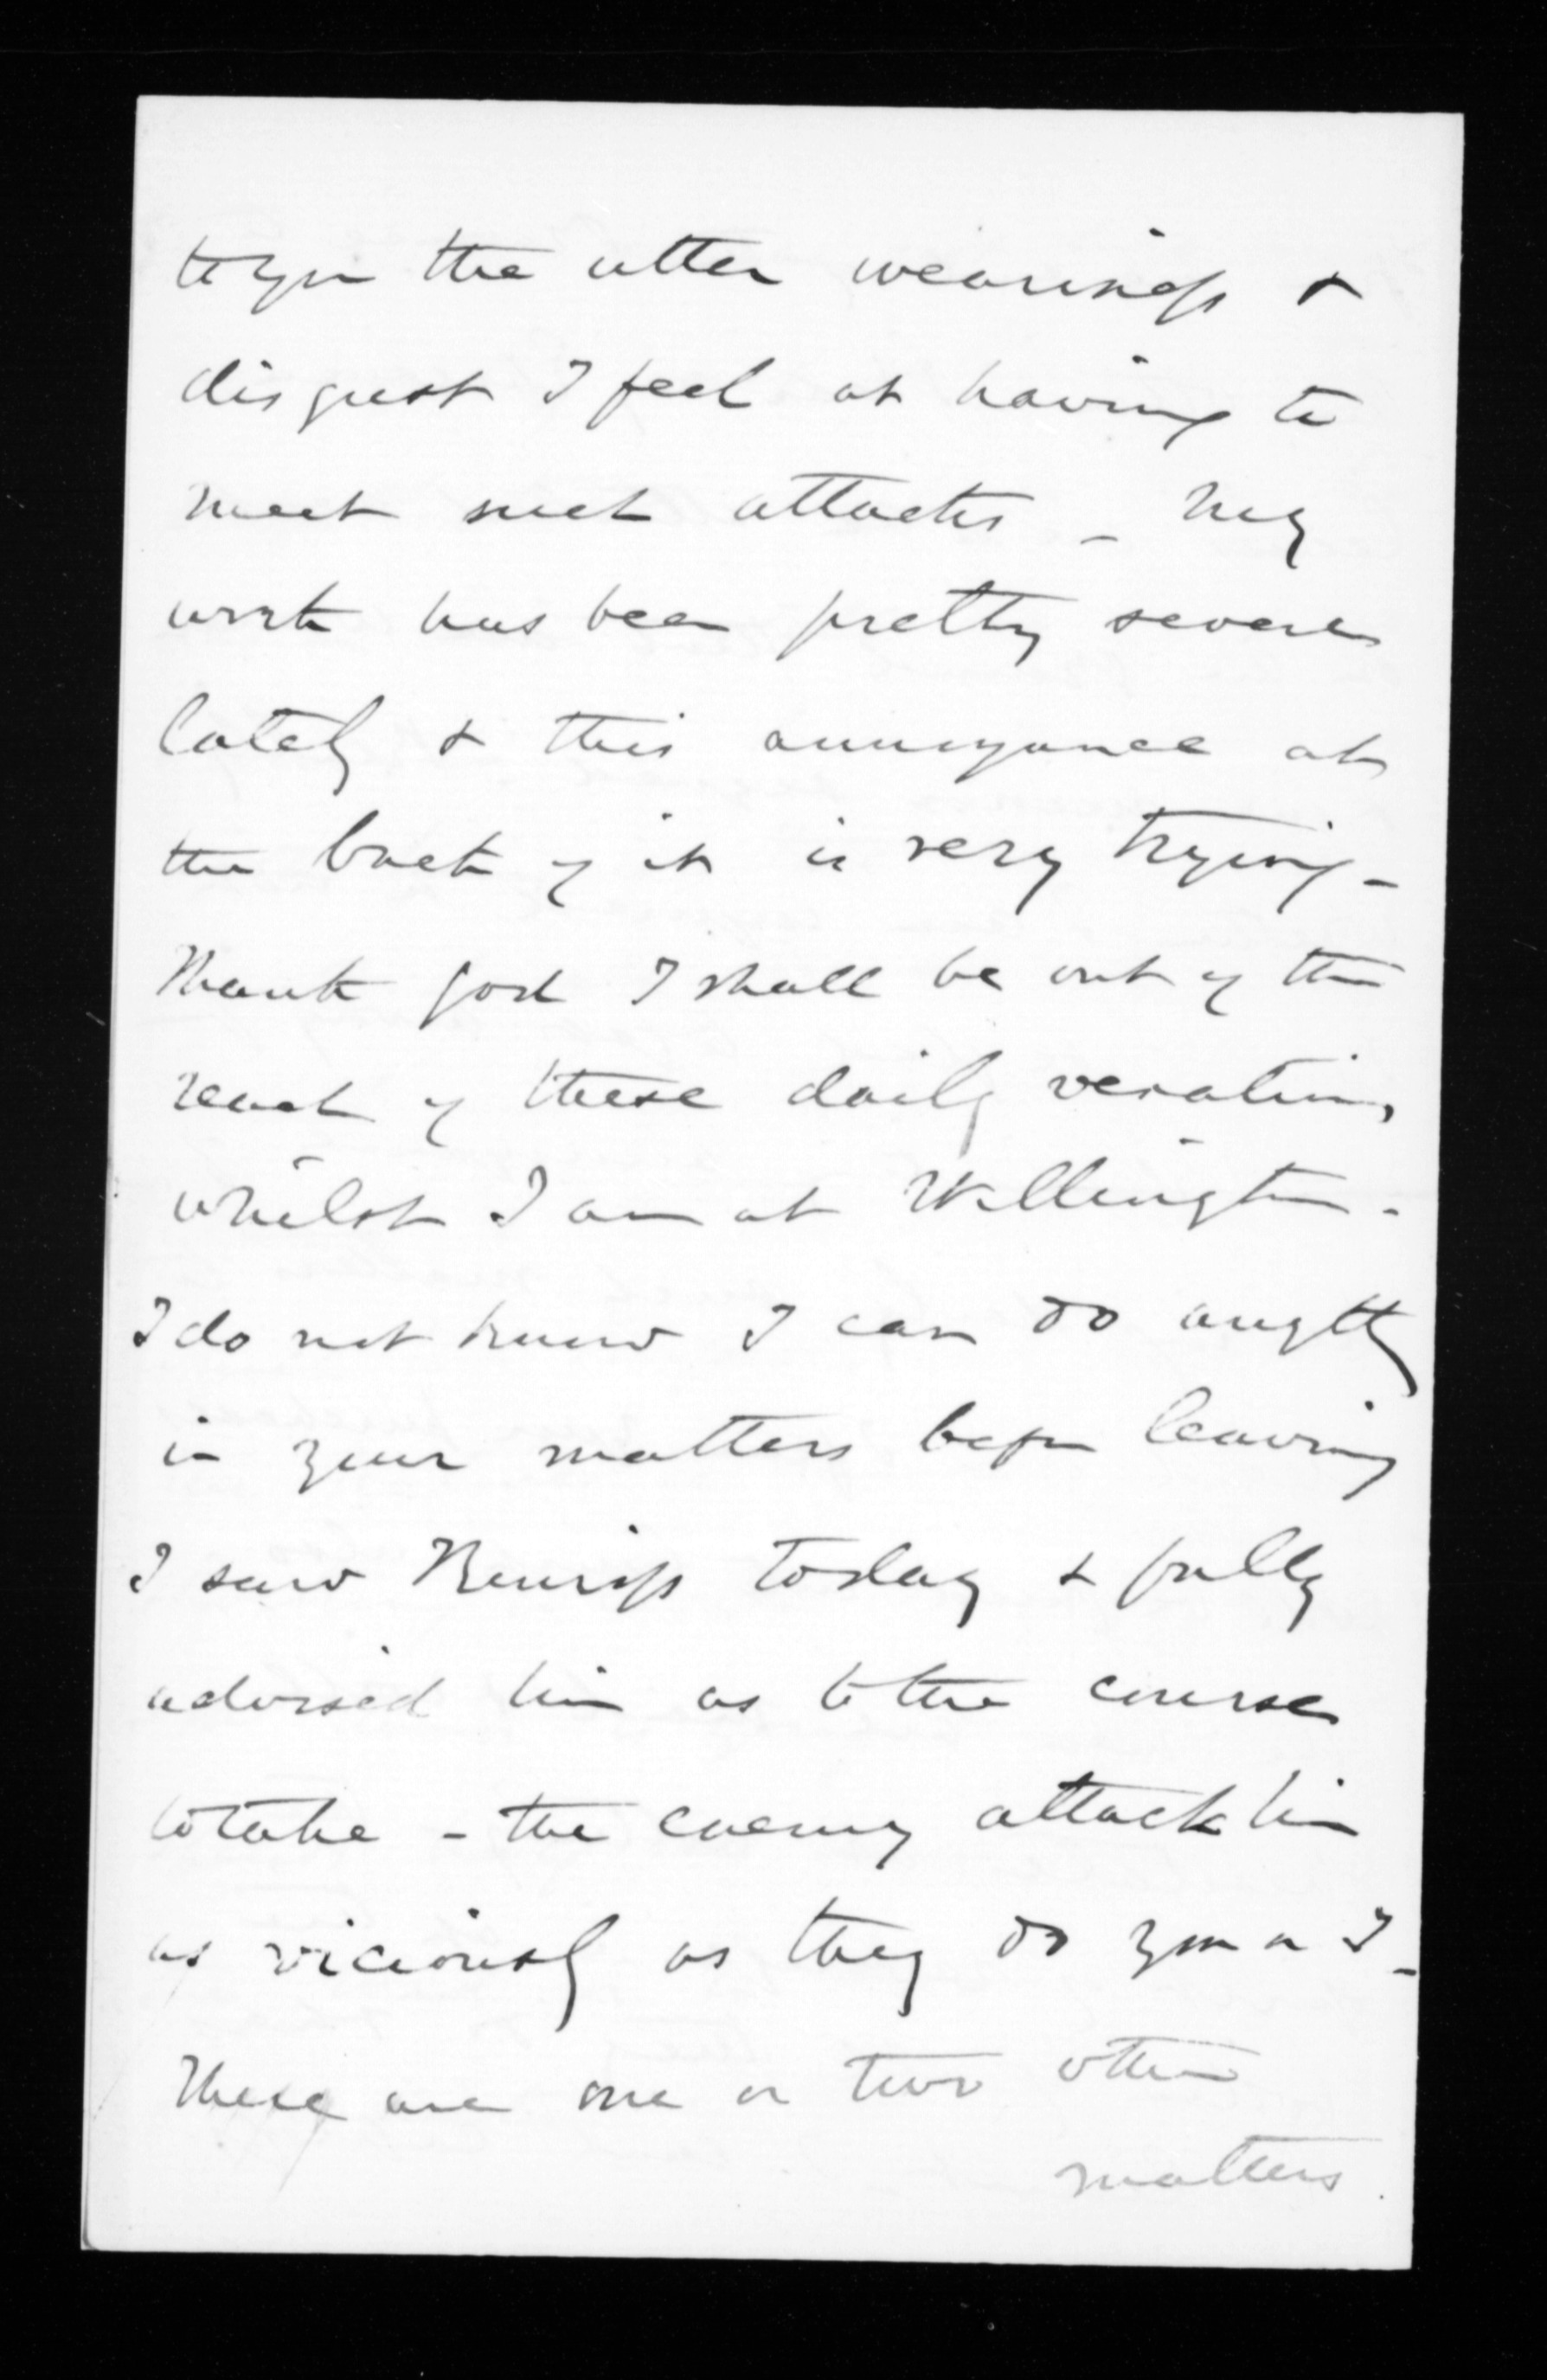 to you the utter weariness &
disgust I feel at having to
meet such attacks - My
work has been pretty severe
lately & this annoyance at
the back of it is very trying -
Thank God I shall be out of the
reach of these daily vexations
whilst I am at Wellington -
I do not know I can do anything
in your matters before leaving
I saw today & fully
advised him as to the course
to take - the enemy attack him
as viciously as they do you or I -
There are one or two other
matters